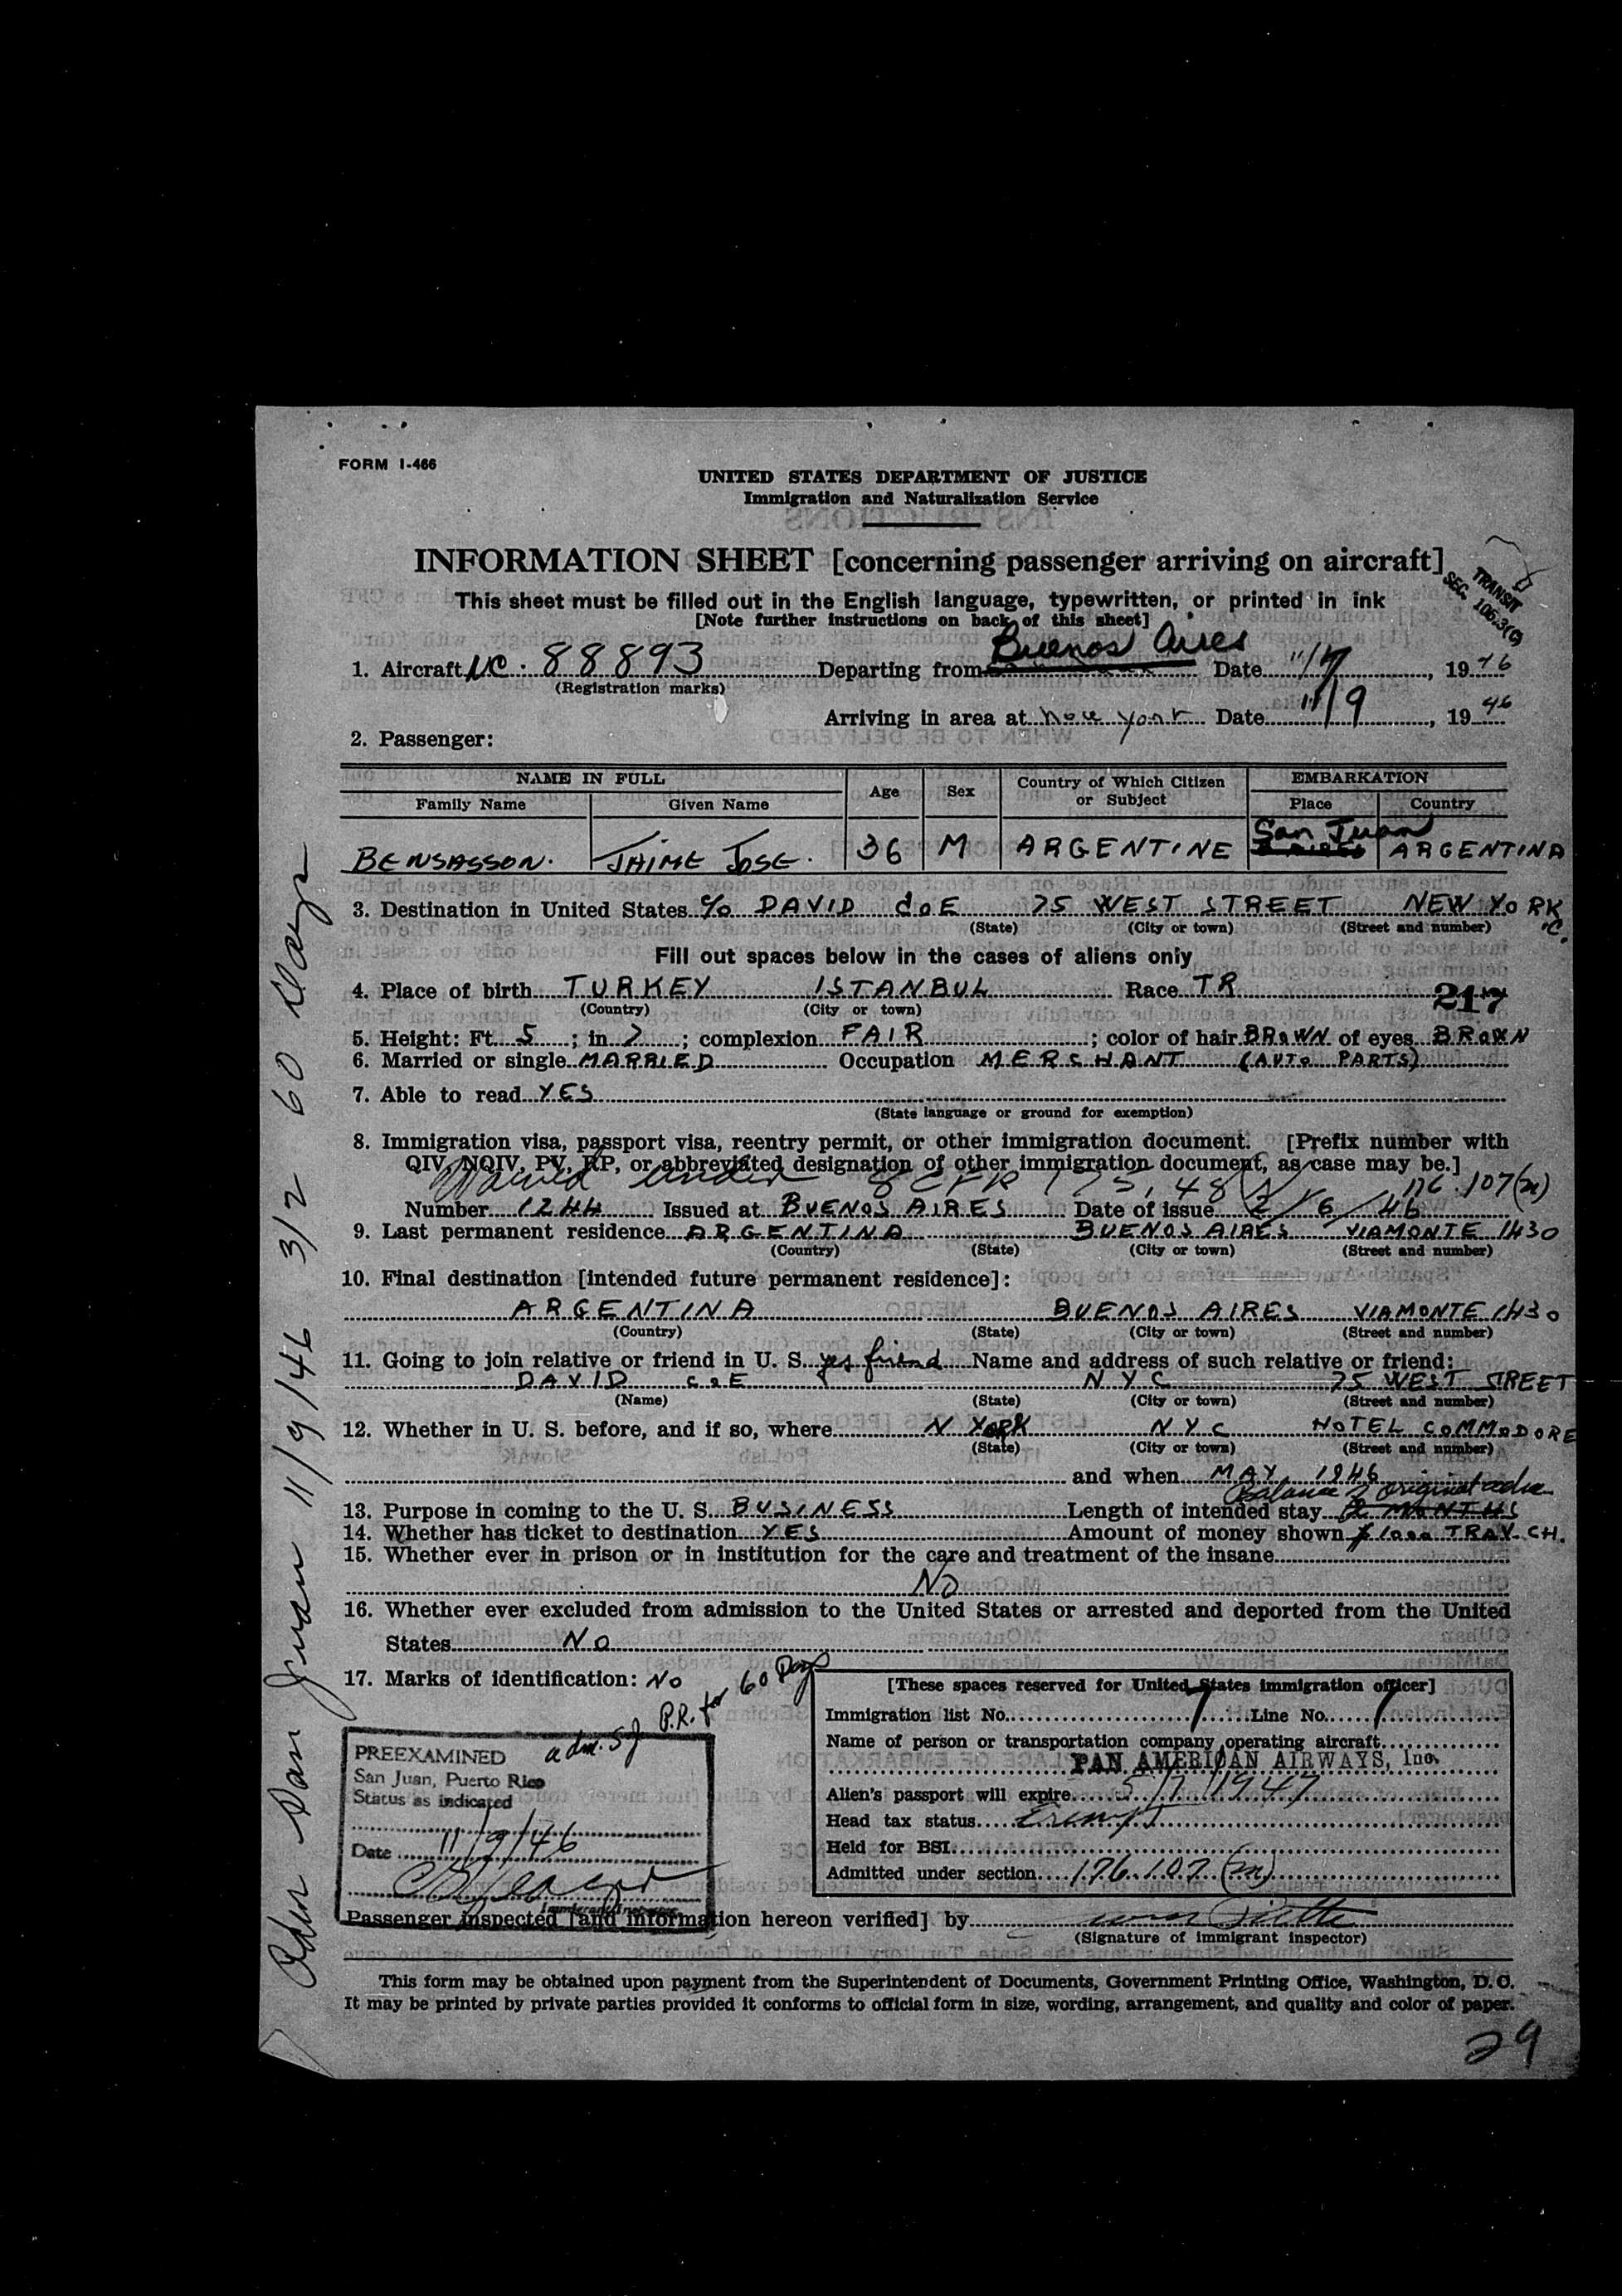 FORM I-466
UNITED STATES DEPARTMENT OF JUSTICE
Immigration and Naturalization Service
INFORMATION SHEET [concerning passenger arriving on aircraft]
TRANSIT
SEC. 106.3(c)
This sheet must be filled out in the English language, typewritten, or printed in ink
[Note further instructions on back of this sheet]
1. Aircraft NC. 88893 Departing from Buenos Aires Date 11/7, 1946
(Registration marks)
Arriving in area at New York Date 11/9, 1946
2. Passenger:
NAME IN FULL Age Sex Country of Which Citizen or Subject EMBARKATION
Family Name Given Name Place Country
BENSASSON. JAIME JOSE. 36 M ARGENTINE San Juan ARGENTINA
3. Destination in United States c/o DAVID COE 75 WEST STREET NEW YORK C.
(State) (City or town) (Street and number)
Fill out spaces below in the cases of aliens only
4. Place of birth TURKEY ISTANBUL Race TR
(Country) (City or town)
217
5. Height: Ft. 5; in 7; complexion FAIR; color of hair BROWN of eyes BROWN
6. Married or single MARRIED Occupation MERCHANT (AUTO PARTS)
7. Able to read YES
(State language or ground for exemption)
8. Immigration visa, passport visa, reentry permit, or other immigration document. [Prefix number with
QIV, NQIV, PV, RP, or abbreviated designation of other immigration document, as case may be.]
Waived under 8 CFR 175.48 176.107(m)
Number 1244 Issued at BUENOS AIRES Date of issue 2/6/46
9. Last permanent residence ARGENTINA BUENOS AIRES VIAMONTE 1430
(Country) (State) (City or town) (Street and number)
10. Final destination [intended future permanent residence]:
ARGENTINA BUENOS AIRES VIAMONTE 1430
(Country) (State) (City or town) (Street and number)
11. Going to join relative or friend in U. S. yes friend Name and address of such relative or friend:
DAVID COE NYC 75 WEST STREET
(Name) (State) (City or town) (Street and number)
12. Whether in U. S. before, and if so, where N YORK NYC HOTEL COMMODORE
(State) (City or town) (Street and number)
and when MAY 1946
Balance of original adm.
13. Purpose in coming to the U. S. BUSINESS Length of intended stay MONTHS
14. Whether has ticket to destination YES Amount of money shown $1000 TRAV. CH.
15. Whether ever in prison or in institution for the care and treatment of the insane
No
16. Whether ever excluded from admission to the United States or arrested and deported from the United
States No
17. Marks of identification: No
adm. SJ P.R. for 60 Days
PREEXAMINED
San Juan, Puerto Rico
Status as indicated
Date 11/9/46
Immigrant Inspector
[These spaces reserved for United States immigration officer]
Immigration list No. 1 Line No. 1
Name of person or transportation company operating aircraft
PAN AMERICAN AIRWAYS, Inc.
Alien's passport will expire 5/7/1947
Head tax status Exempt
Held for BSI
Admitted under section 176.107(m)
Passenger inspected [and information hereon verified] by
(Signature of immigrant inspector)
This form may be obtained upon payment from the Superintendent of Documents, Government Printing Office, Washington, D. C.
It may be printed by private parties provided it conforms to official form in size, wording, arrangement, and quality and color of paper.
29
Adm San Juan 11/9/46 3/2 60 Days